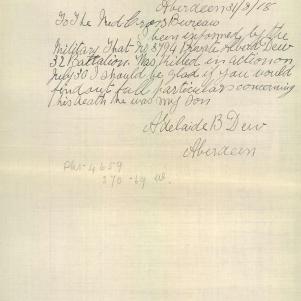 Aberdeen 21/8/18
To The Red Cross Bureau
been informed by the
Military That No 3794 Private Dew
32 Battalion was killed in action on
July 30 I should be glad if you would
find out full particulars concerning
his death he was my son
Adelaide B Dew
Aberdeen